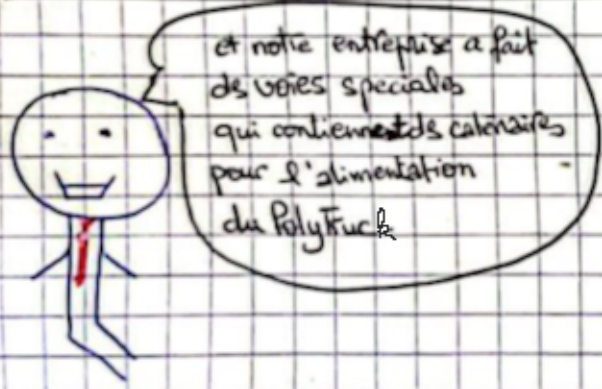 et notre entreprise a fait
ds voies speciales
qui contiennent ds catenaires
pour l'alimentation
du PolyTruck